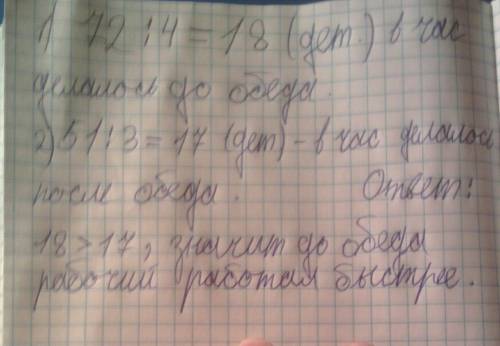 1) 72:4=18 (дет.) в час
делалось до обеда.
2) 51:3=17 (дет) - в час делалось
после обеда. Ответ:
18>17, значит до обеда
рабочий работал быстрее.